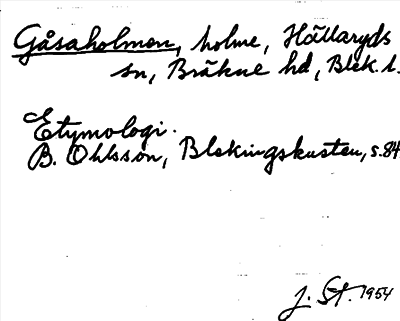 Gåsaholmen, holme, Hällaryds
sn, Bräkne hd, Blek. l.
Etymologi.
B. Ohlsson, Blekingskusten, s. 84
J. St. 1954